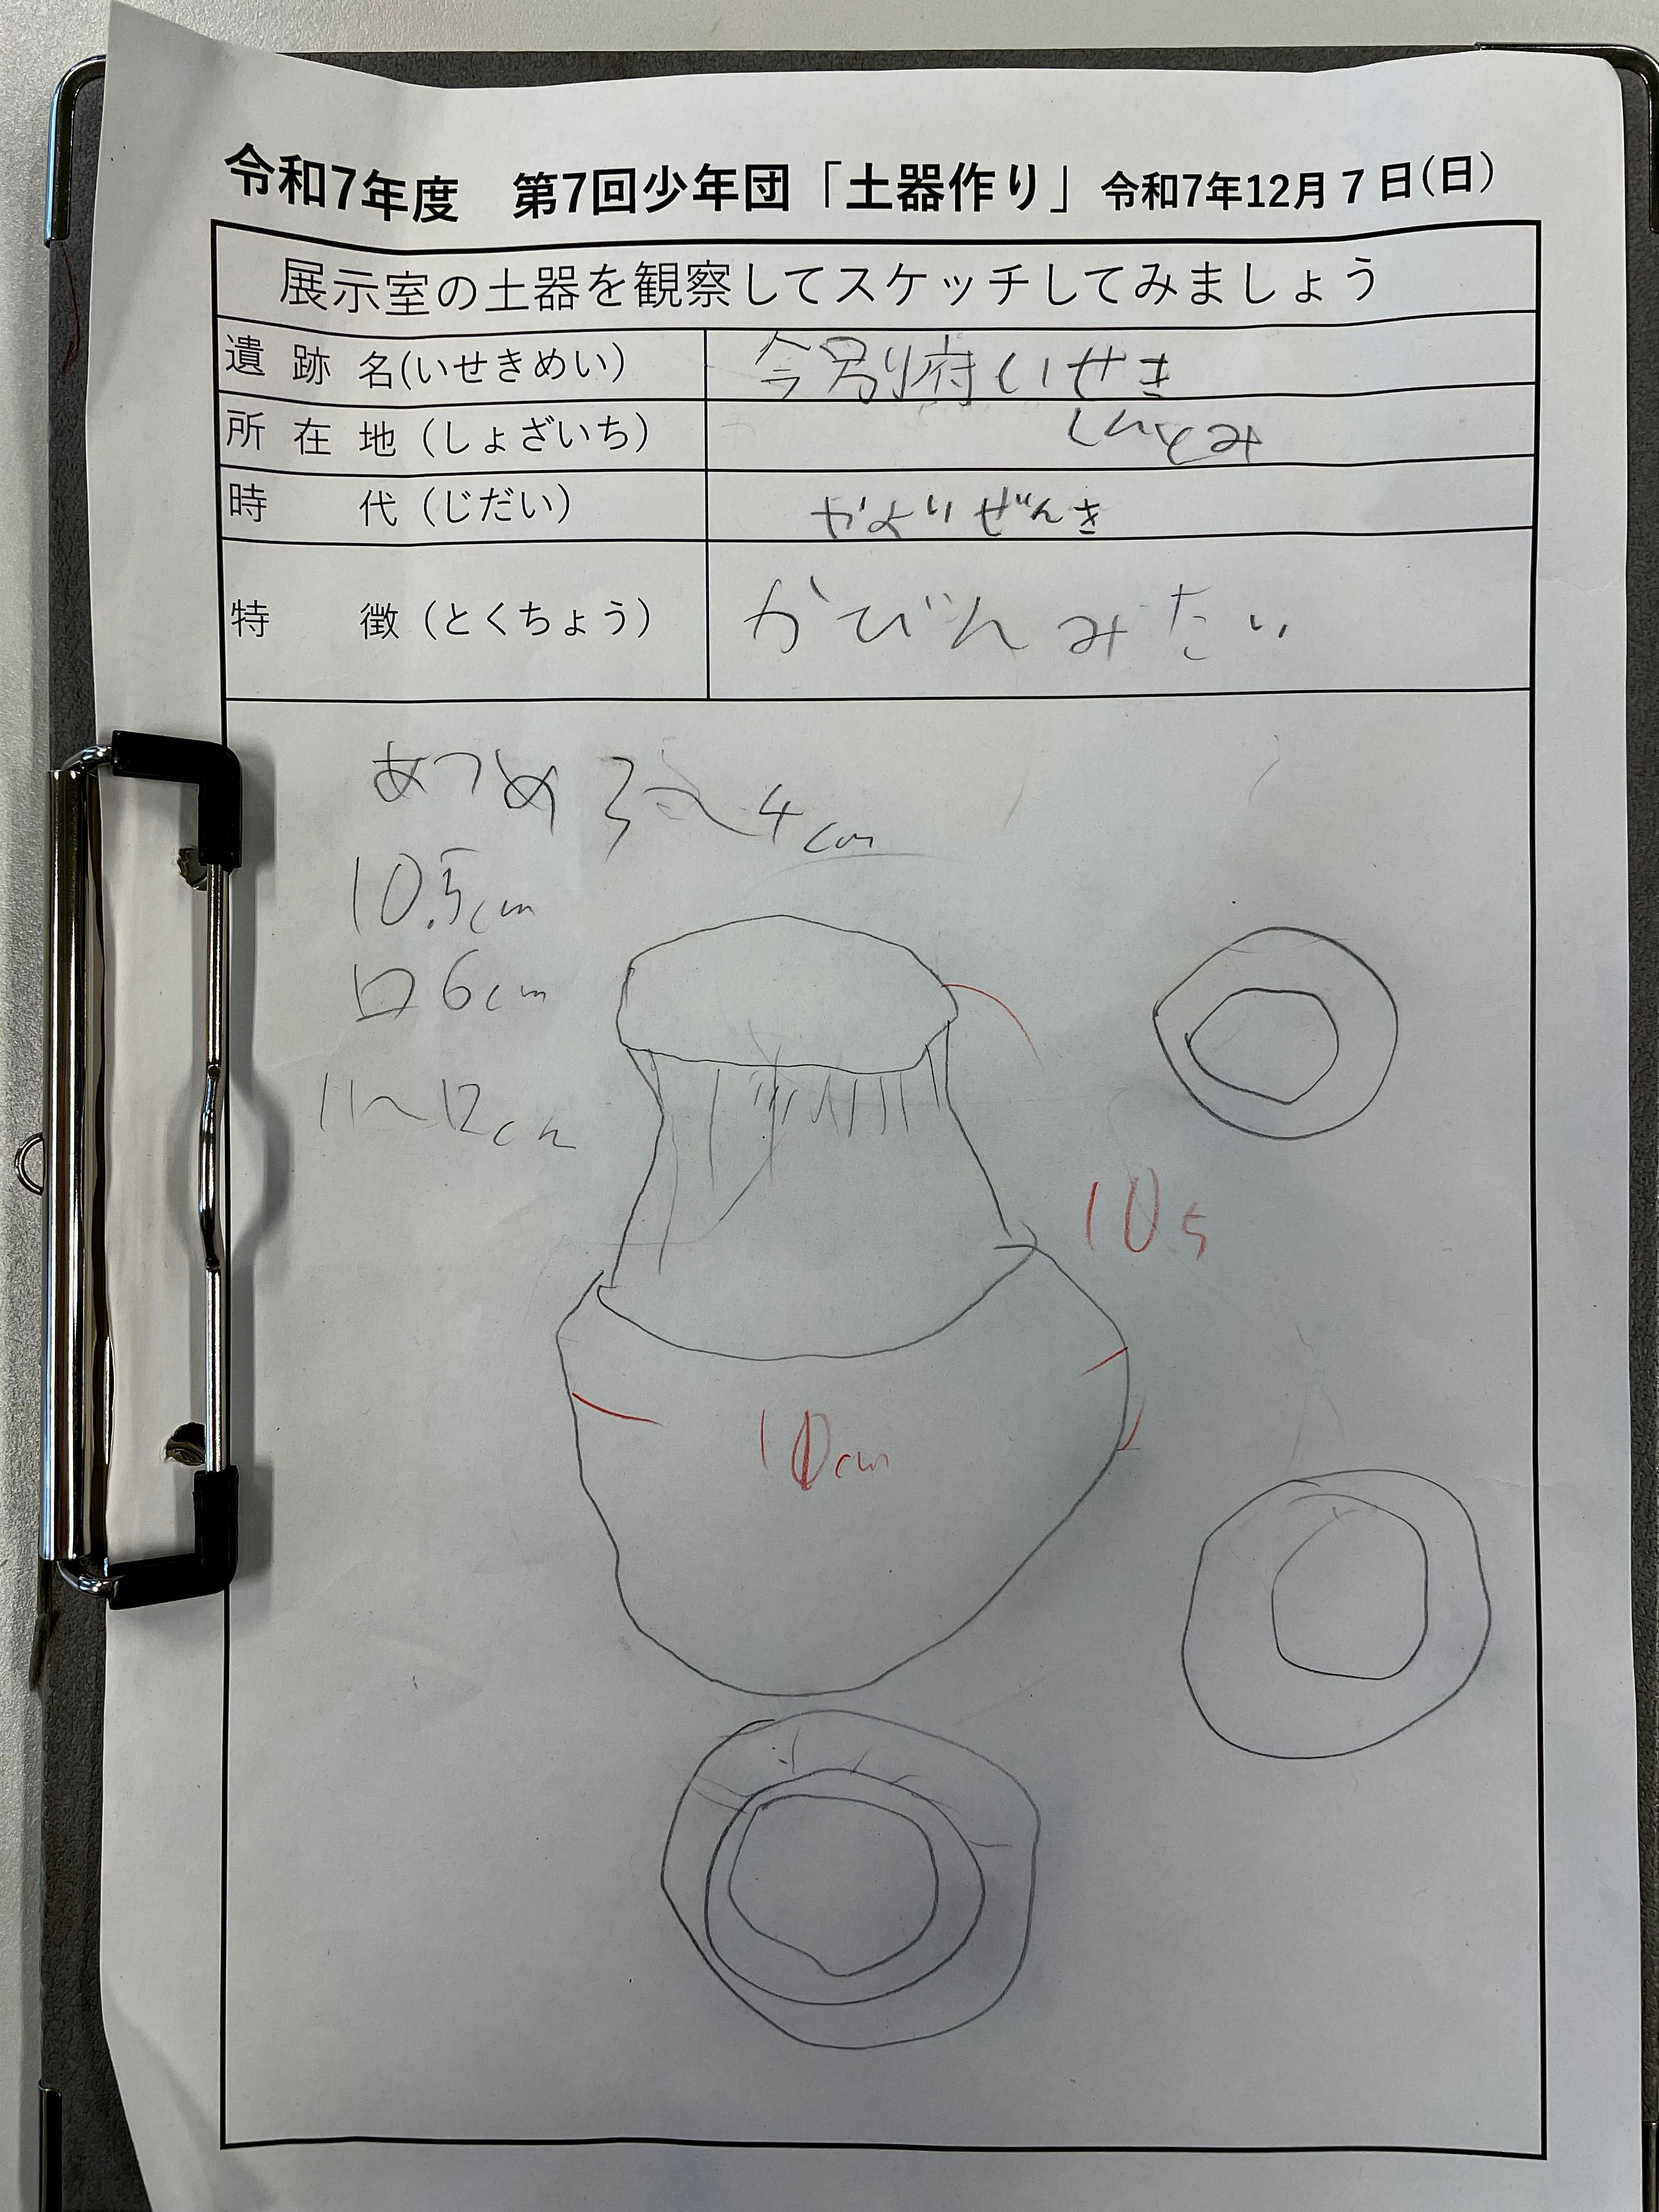 令和7年度 第7回少年団「土器作り」 令和7年12月7日(日)
展示室の土器を観察してスケッチしてみましょう
遺跡名(いせきめい) 今別府いせき
所在地(しょざいち) しんとみ
時代(じだい) やよいぜんき
特徴(とくちょう) かびんみたい
あつめ 3〜4cm
10.5cm
口6cm
11〜12cm
105
10cm